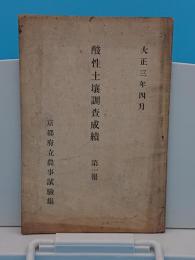 大正三年四月
酸性土壤調査成績 第一報
京都府立農事試驗場